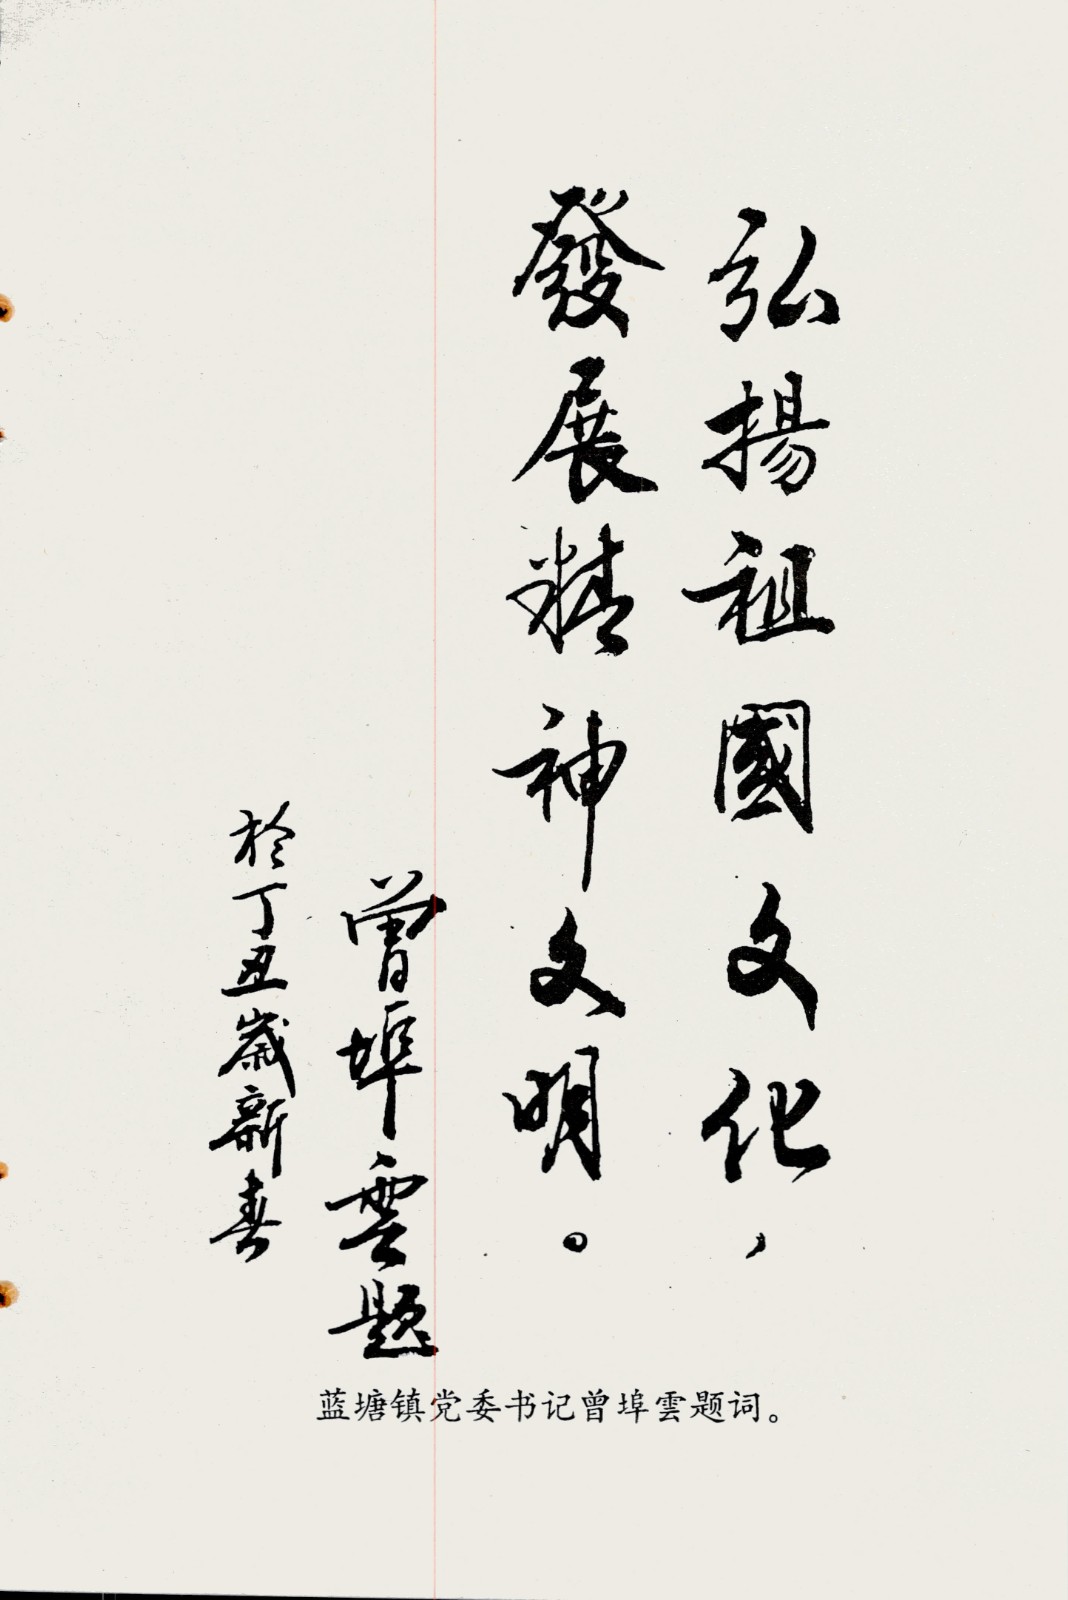 弘揚祖國文化，
發展精神文明。
曾埠雲題
於丁丑歲新春
蓝塘镇党委书记曾埠雲题词。